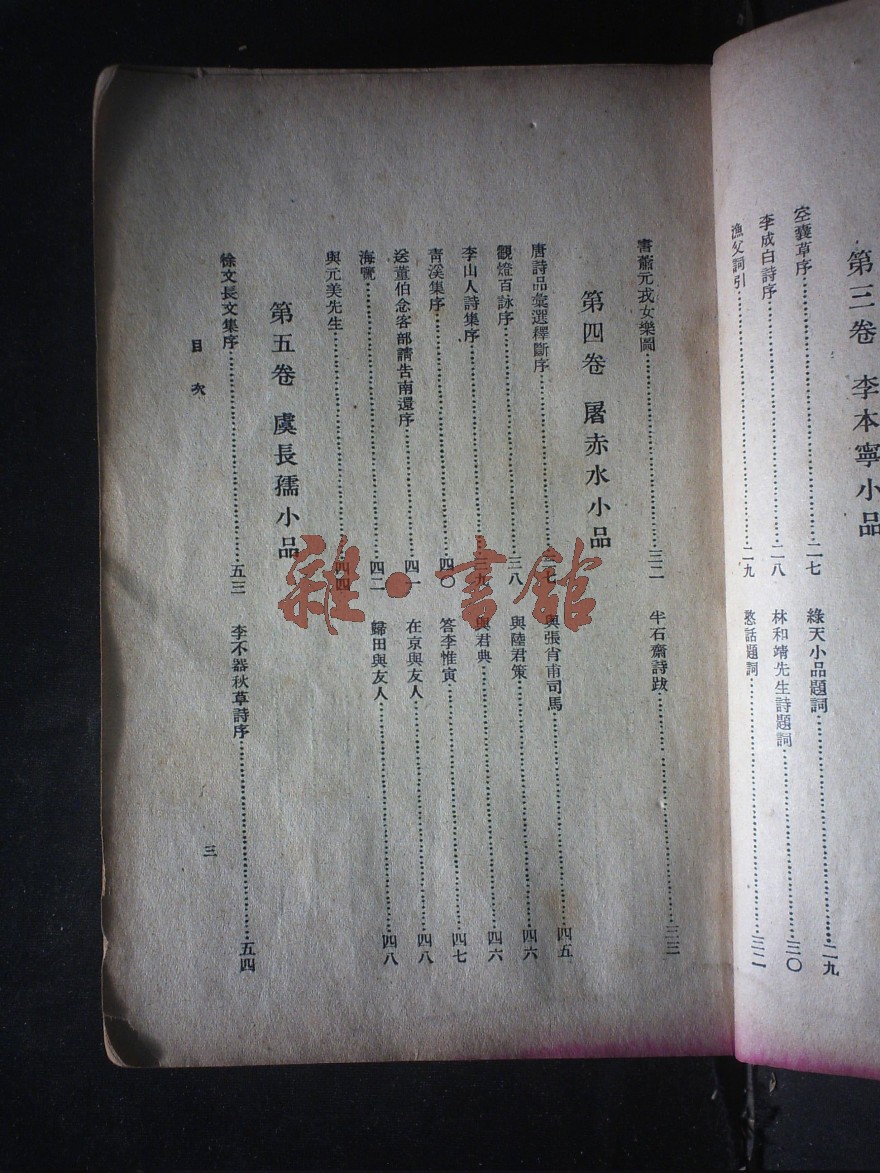 第三卷　李本寧小品
空囊草序……二七
綠天小品題詞……二九
李成白詩序……二八
林和靖先生詩題詞……三〇
漁父詞引……二九
憨話題詞……三一
書蕭元戎女樂圖……三二
半石齋詩跋……三三
第四卷　屠赤水小品
唐詩品彙選釋斷序……三七
與張肖甫司馬……四五
觀燈百詠序……三八
與陸君策……四六
李山人詩集序……三九
與君典……四六
青溪集序……四〇
答李惟寅……四七
送董伯念客部請告南還序……四一
在京與友人……四八
海覽……四二
歸田與友人……四八
與元美先生……四四
第五卷　虞長孺小品
徐文長文集序……五三
李不器秋草詩序……五四
目次
三
雜·書館